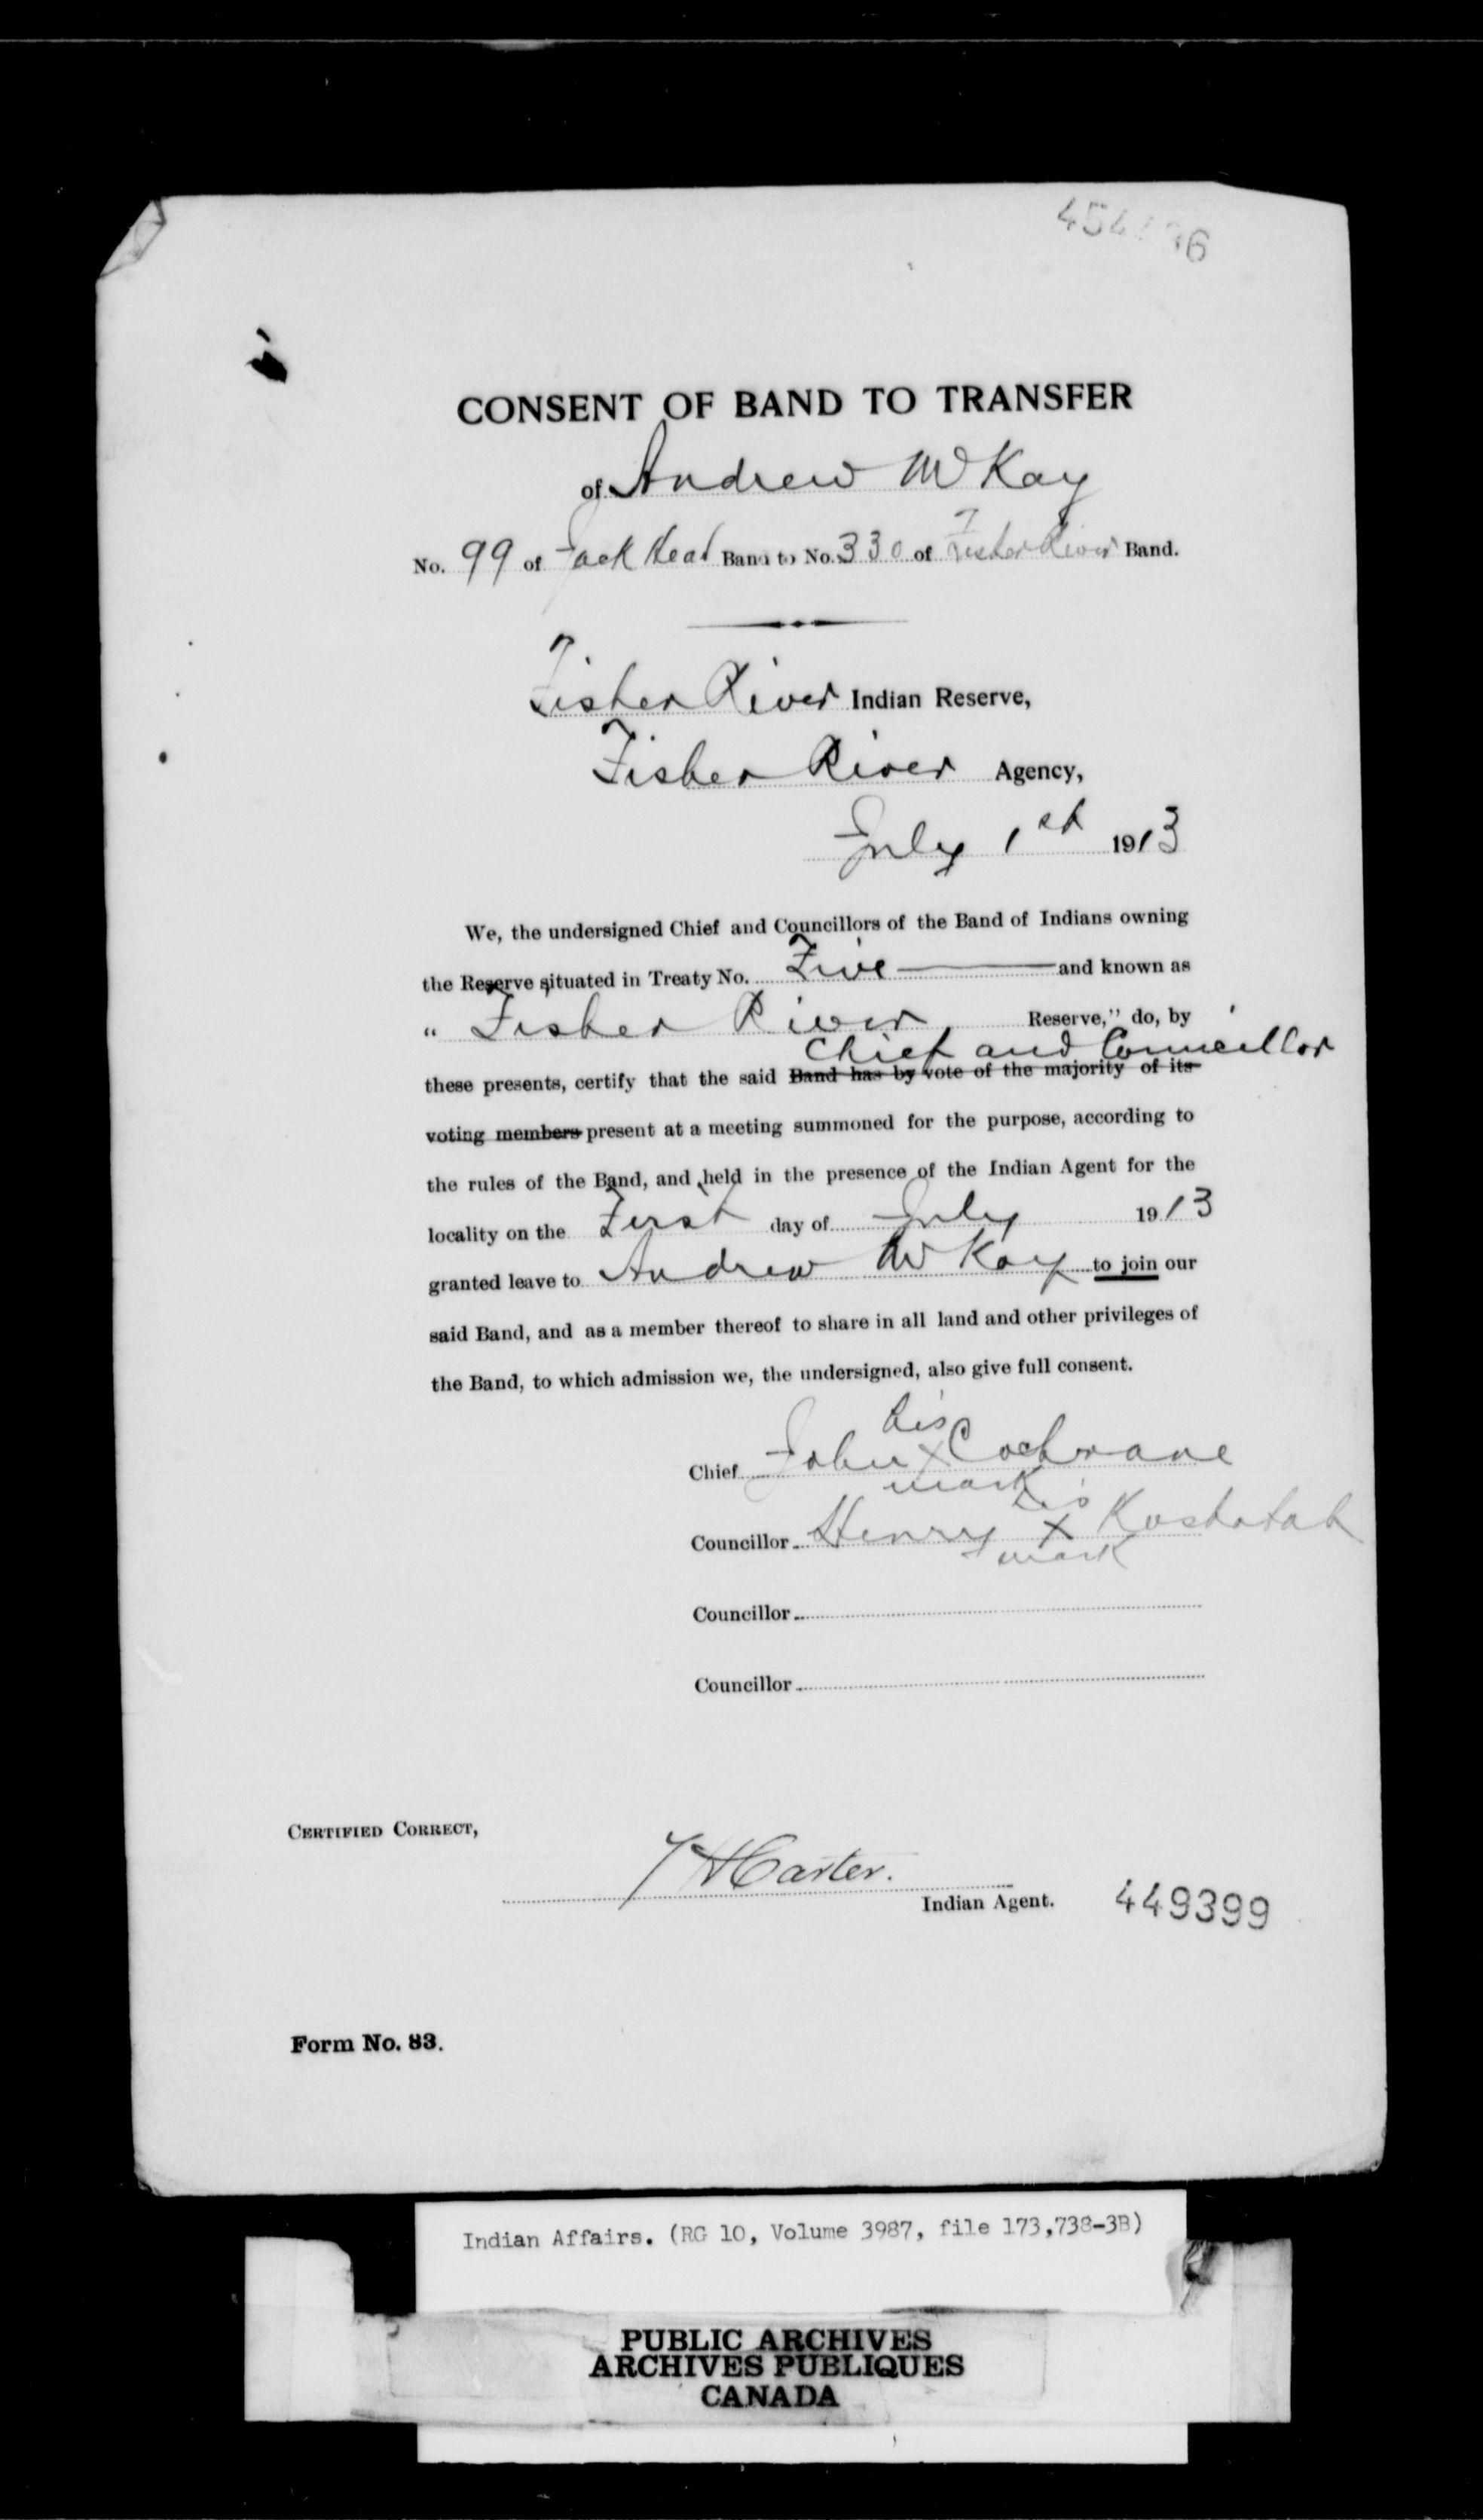 CONSENT OF BAND TO TRANSFER
of Andrew McKay
No. 99 of Jack Head Band to No. 330 of Fisher River Band.
Fisher River Indian Reserve,
Fisher River Agency,
July 1st 1913
We, the undersigned Chief and Councillors of the Band of Indians owning
the Reserve situated in Treaty No. Five — and known as
" Fisher River Reserve," do, by
Chief and Councillor
these presents, certify that the said Band has by vote of the majority of its
voting members present at a meeting summoned for the purpose, according to
the rules of the Band, and held in the presence of the Indian Agent for the
locality on the First day of July 1913
granted leave to Andrew McKay to join our
said Band, and as a member thereof to share in all land and other privileges of
the Band, to which admission we, the undersigned, also give full consent.
his
Chief John x Cochrane
mark
his
Councillor Henry x
mark
Councillor
Councillor
CERTIFIED CORRECT,
T H Carter.
Indian Agent.
449399
Form No. 83.
Indian Affairs. (RG 10, Volume 3987, file 173,738-3B)
PUBLIC ARCHIVES
ARCHIVES PUBLIQUES
CANADA